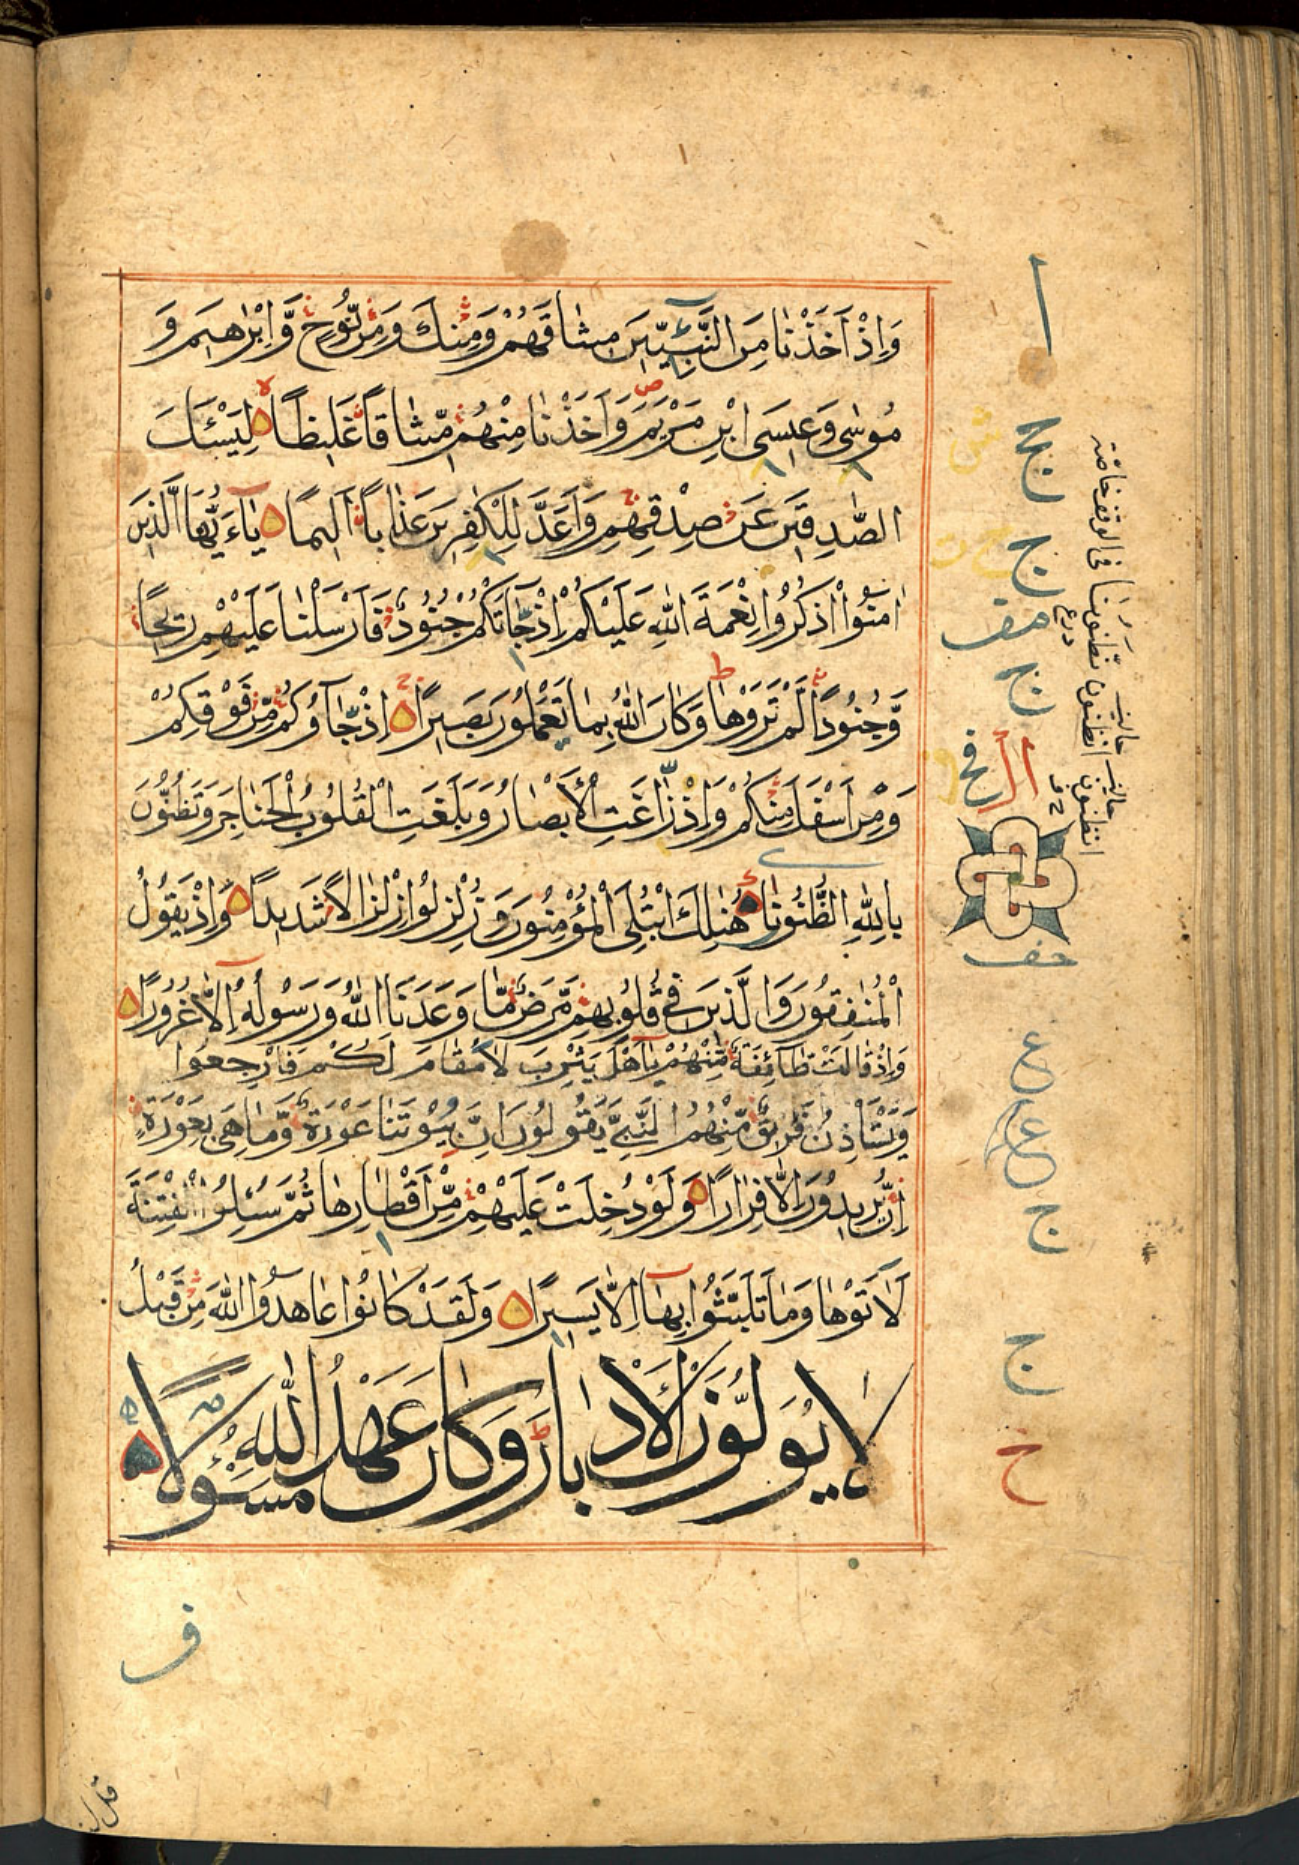 وَاِذْ اَخَذْنَا مِنَ النَّبِيّٖنَ مِيثَاقَهُمْ وَمِنْكَ وَمِنْ نُّوحٍ وَّاِبْرٰهِيمَ وَ
مُوسٰى وَعِيسَى ابْنِ مَرْيَمَ وَاَخَذْنَا مِنْهُمْ مِّيثَاقًا غَلِيظًا لِيَسْئَلَ
الصّٰدِقِينَ عَنْ صِدْقِهِمْ وَاَعَدَّ لِلْكٰفِرِينَ عَذَابًا اَلِيمًا يٰاَيُّهَا الَّذِينَ
اٰمَنُوا اذْكُرُوا نِعْمَةَ اللّٰهِ عَلَيْكُمْ اِذْ جَاءَتْكُمْ جُنُودٌ فَاَرْسَلْنَا عَلَيْهِمْ رِيحًا
وَّجُنُودًا لَّمْ تَرَوْهَا وَكَانَ اللّٰهُ بِمَا تَعْمَلُونَ بَصِيرًا اِذْ جَاؤُكُمْ مِّنْ فَوْقِكُمْ
وَمِنْ اَسْفَلَ مِنْكُمْ وَاِذْ زَاغَتِ الْاَبْصَارُ وَبَلَغَتِ الْقُلُوبُ الْحَنَاجِرَ وَتَظُنُّونَ
بِاللّٰهِ الظُّنُونَا هُنَالِكَ ابْتُلِيَ الْمُؤْمِنُونَ وَزُلْزِلُوا زِلْزَالًا شَدِيدًا وَاِذْ يَقُولُ
الْمُنٰفِقُونَ وَالَّذِينَ فِي قُلُوبِهِمْ مَّرَضٌ مَّا وَعَدَنَا اللّٰهُ وَرَسُولُهُ اِلَّا غُرُورًا
وَاِذْ قَالَتْ طَائِفَةٌ مِّنْهُمْ يٰاَهْلَ يَثْرِبَ لَا مُقَامَ لَكُمْ فَارْجِعُوا
وَيَسْتَاْذِنُ فَرِيقٌ مِّنْهُمُ النَّبِيَّ يَقُولُونَ اِنَّ بُيُوتَنَا عَوْرَةٌ وَّمَا هِيَ بِعَوْرَةٍ
اِنْ يُّرِيدُونَ اِلَّا فِرَارًا وَلَوْ دُخِلَتْ عَلَيْهِمْ مِّنْ اَقْطَارِهَا ثُمَّ سُئِلُوا الْفِتْنَةَ
لَاٰتَوْهَا وَمَا تَلَبَّثُوا بِهَا اِلَّا يَسِيرًا وَلَقَدْ كَانُوا عَاهَدُوا اللّٰهَ مِنْ قَبْلُ
لَا يُوَلُّونَ الْاَدْبَارَ وَكَانَ عَهْدُ اللّٰهِ مَسْئُولًا
ف